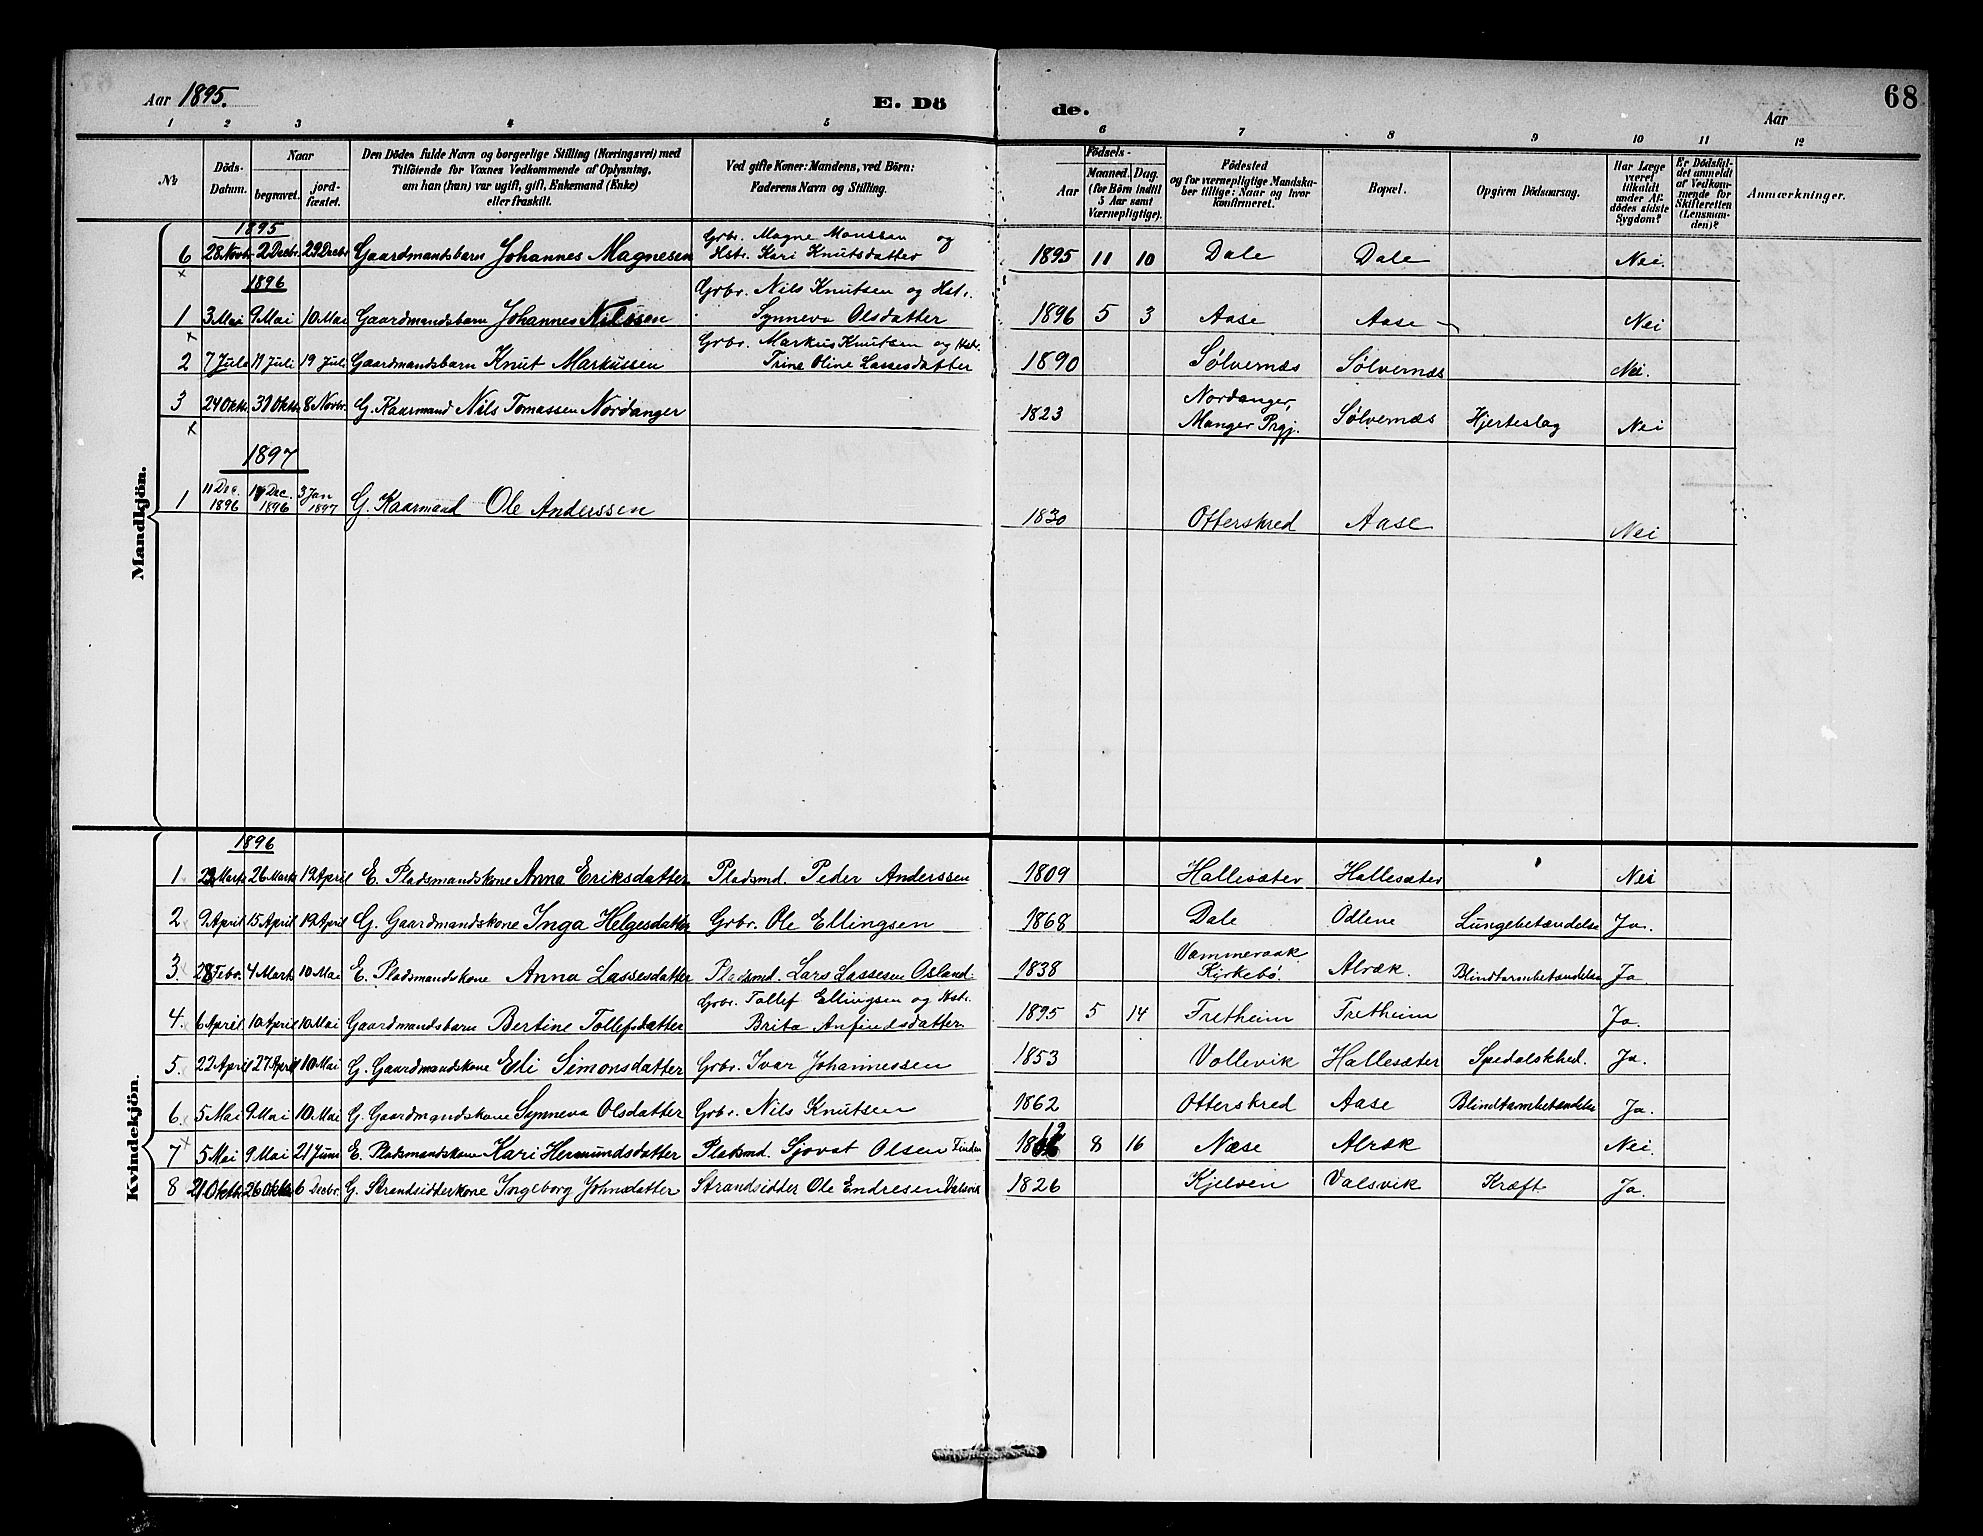 Aar 1895. E. Dö de. Aar 68
1 2 3 4 5 6 7 8 9 10 11 12
№ Döds-Datum. Naar begravet. jord-fæstet. Den Dödes fulde Navn og borgerlige Stilling (Næringsvei) med Tilföiende for Voxnes Vedkommende af Oplysning, om han (hun) var ugift, gift, Enkemand (Enke) eller fraskilt. Ved gifte Koner: Mandens, ved Börn: Faderens Navn og Stilling. Födsels- Aar Maaned. Dag. (for Börn indtil 5 Aar samt Værnepligtige). Födested og for værnepligtige Mandskaber tillige: Naar og hvor konfirmeret. Bopæl. Opgiven Dödsaarsag. Har Læge været tilkaldt under Afdödes sidste Sygdom? Er Dödsfaldet anmeldt af Vedkommende for Skifteretten (Lensmanden)? Anmærkninger.
Mandkjön.
1895
6 28 Novb. 2 Decbr. 29 Decbr. Gaardmandsbarn Johannes Magnesen Grbr. Magne Monssen og Hstr. Kari Knutsdatter 1895 11 10 Dale Dale Nei.
1896
1 3 Mai 9 Mai 10 Mai Gaardmandsbarn Johannes Nilssen Grbr. Nils Knutsen og Hst. Synneva Olsdatter 1896 5 3 Aase Aase Nei
2 7 Juli 11 Juli 19 Juli Gaardmandsbarn Knut Markussen Grbr. Markus Knutsen og Hstr. Trine Oline Lassesdatter 1890 Sølvernæs Sølvernæs Nei.
3 24 Oktb. 31 Oktb. 8 Novbr. G. Kaarmand Nils Tomassen Nordanger 1823 Nordanger, Manger Prgj. Sølvernæs Hjerteslag Nei
1897
1 11 Dec. 1896 17 Dec. 1896 3 Jan 1897 G. Kaarmand Ole Anderssen 1830 Otterskred Aase Nei
Kvindekjön.
1896
1 Marts 26 Marts 19 April E. Pladsmandskone Anna Eriksdatter Pladsmd. Peder Anderssen 1809 Hallesæter Hallesæter Nei
2 9 April 15 April 19 April G. Gaardmandskone Inga Helgesdatter Grbr. Ole Ellingsen 1868 Dale Odlene Lungebetændelse Ja.
3. 28 Febr. 4 Marts 10 Mai E. Pladsmandskone Anna Lassesdatter Pladsmd. Lars Lassesen Osland 1838 Vammeraak Kirkebø Alræk. Blindtarmbetændelse Ja
4. 6 April 10 April 10 Mai Gaardmandsbarn Bertine Tollefsdatter Grbr. Tollef Ellingsen og Hst. Brita Anfindsdatter 1895 5 14 Fretheim Fretheim Ja.
5. 22 April 27 April 10 Mai G. Gaardmandskone Eli Simonsdatter Grbr. Ivar Johannessen 1853 Vollevik Hallesæter Spedalskhed. Ja.
6. 5 Mai 9 Mai 10 Mai G. Gaardmandskone Synneva Olsdatter Grbr. Nils Knutsen 1862 Otterskred Aase Blindtarmbetændelse Ja.
7 5 Mai 9 Mai 21 Juni E. Pladsmandskone Kari Hermundsdatter Pladsmd. Sjovat Olsen Finden 1812 8 16 Næse Alræk Nei.
8 21 Oktbr 26 Oktbr 6 Decbr. G. Strandsidderkone Ingeborg Johnsdatter Strandsidder Ole Endresen Valsvik 1826 Kjelven Valsvik Kræft Ja.